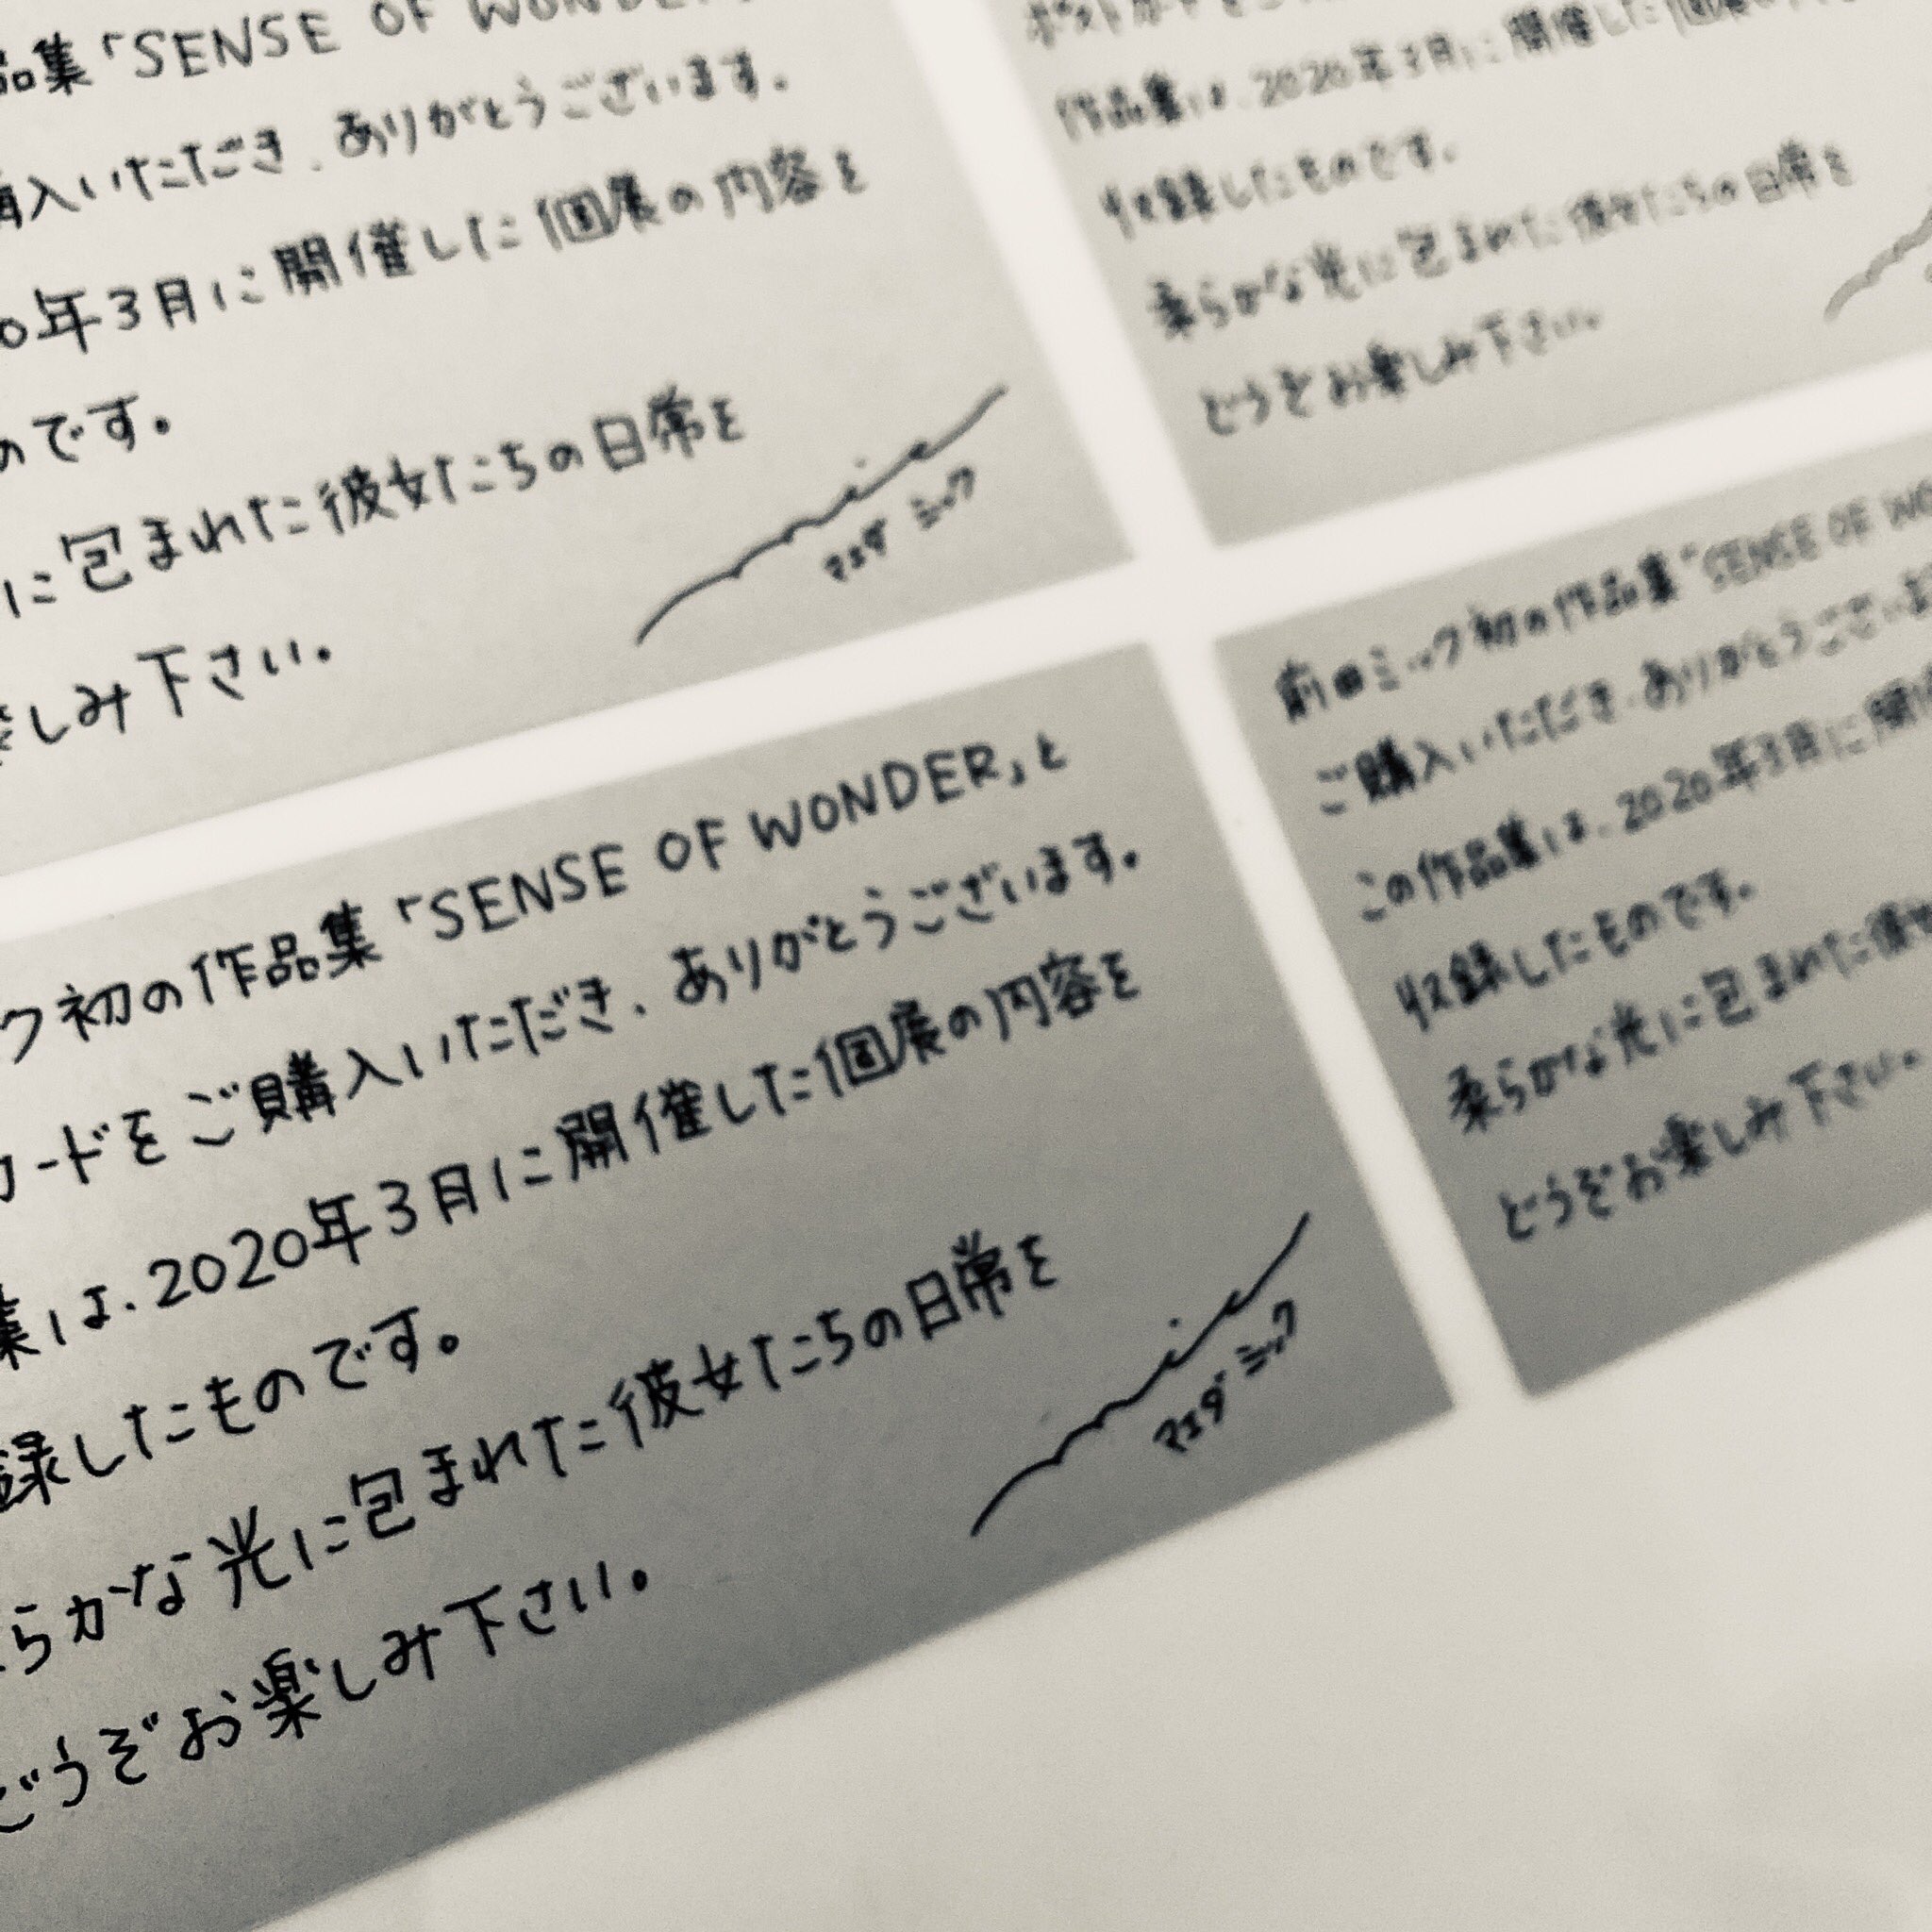 品集「SENSE OF WONDER
購入いただき、ありがとうございます。
0年3月に開催した個展の内容を
のです。
に包まれた彼女たちの日常を
楽しみ下さい。
マエダ ミック
作品集は、2020年3月に開催した個展の
収録したものです。
柔らかな光に包まれた彼女たちの日常を
どうぞお楽しみ下さい。
ク初の作品集「SENSE OF WONDER」と
カードをご購入いただき、ありがとうございます。
集は、2020年3月に開催した個展の内容を
録したものです。
らかな光に包まれた彼女たちの日常を
どうぞお楽しみ下さい。
マエダ ミック
前田ミック初の作品集「SENSE OF WO
ご購入いただき、ありがとうございま
この作品集は、2020年3月に開催
収録したものです。
柔らかな光に包まれた彼女
どうぞお楽しみ下さい。